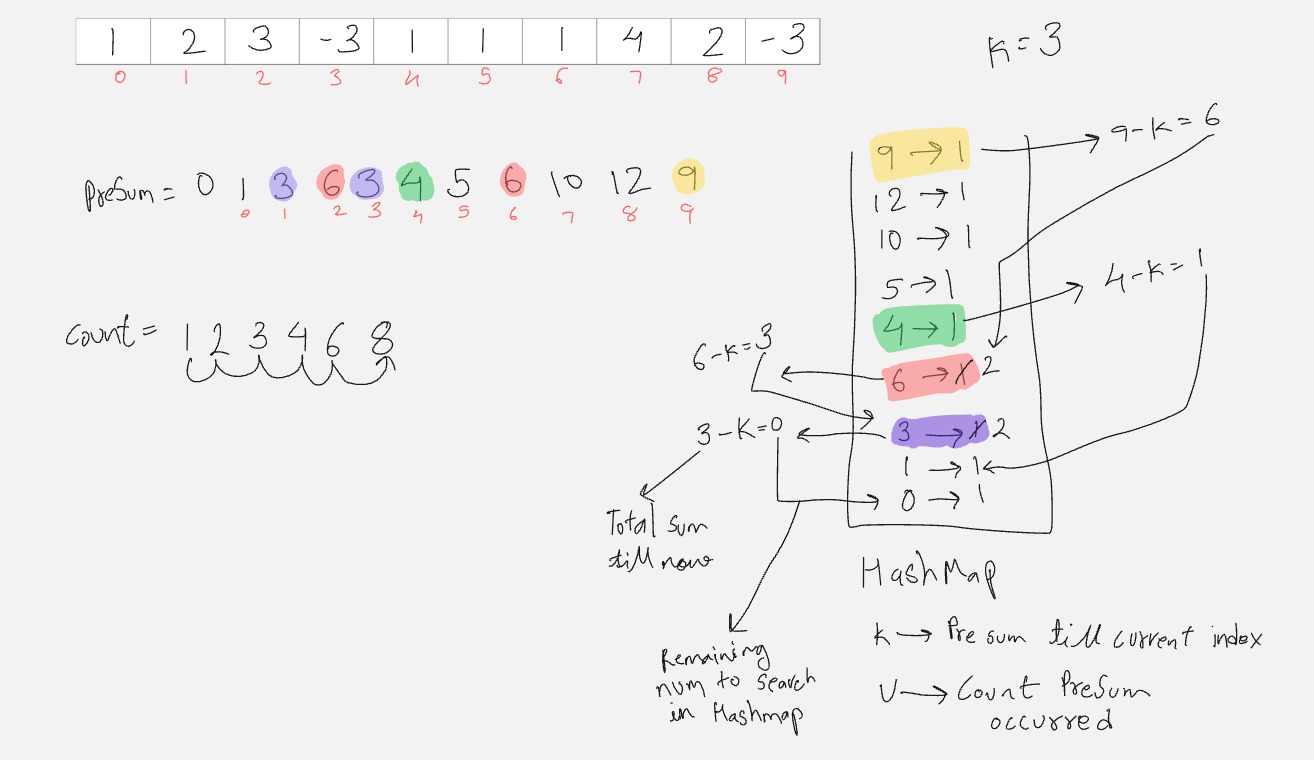 1 2 3 -3 1 1 1 4 2 -3
0 1 2 3 4 5 6 7 8 9
K = 3
PreSum = 0 1 3 6 3 4 5 6 10 12 9
0 1 2 3 4 5 6 7 8 9
Count = 1 2 3 4 6 8
9 → 1
9-K = 6
12 → 1
10 → 1
5 → 1
4-K = 1
4 → 1
6-K = 3
6 → 1 2
3-K=0
3 → 1 2
1 → 1
0 → 1
Total sum
till now
HashMap
Remaining
num to search
in Hashmap
K → Pre sum till current index
V → Count PreSum
occurred